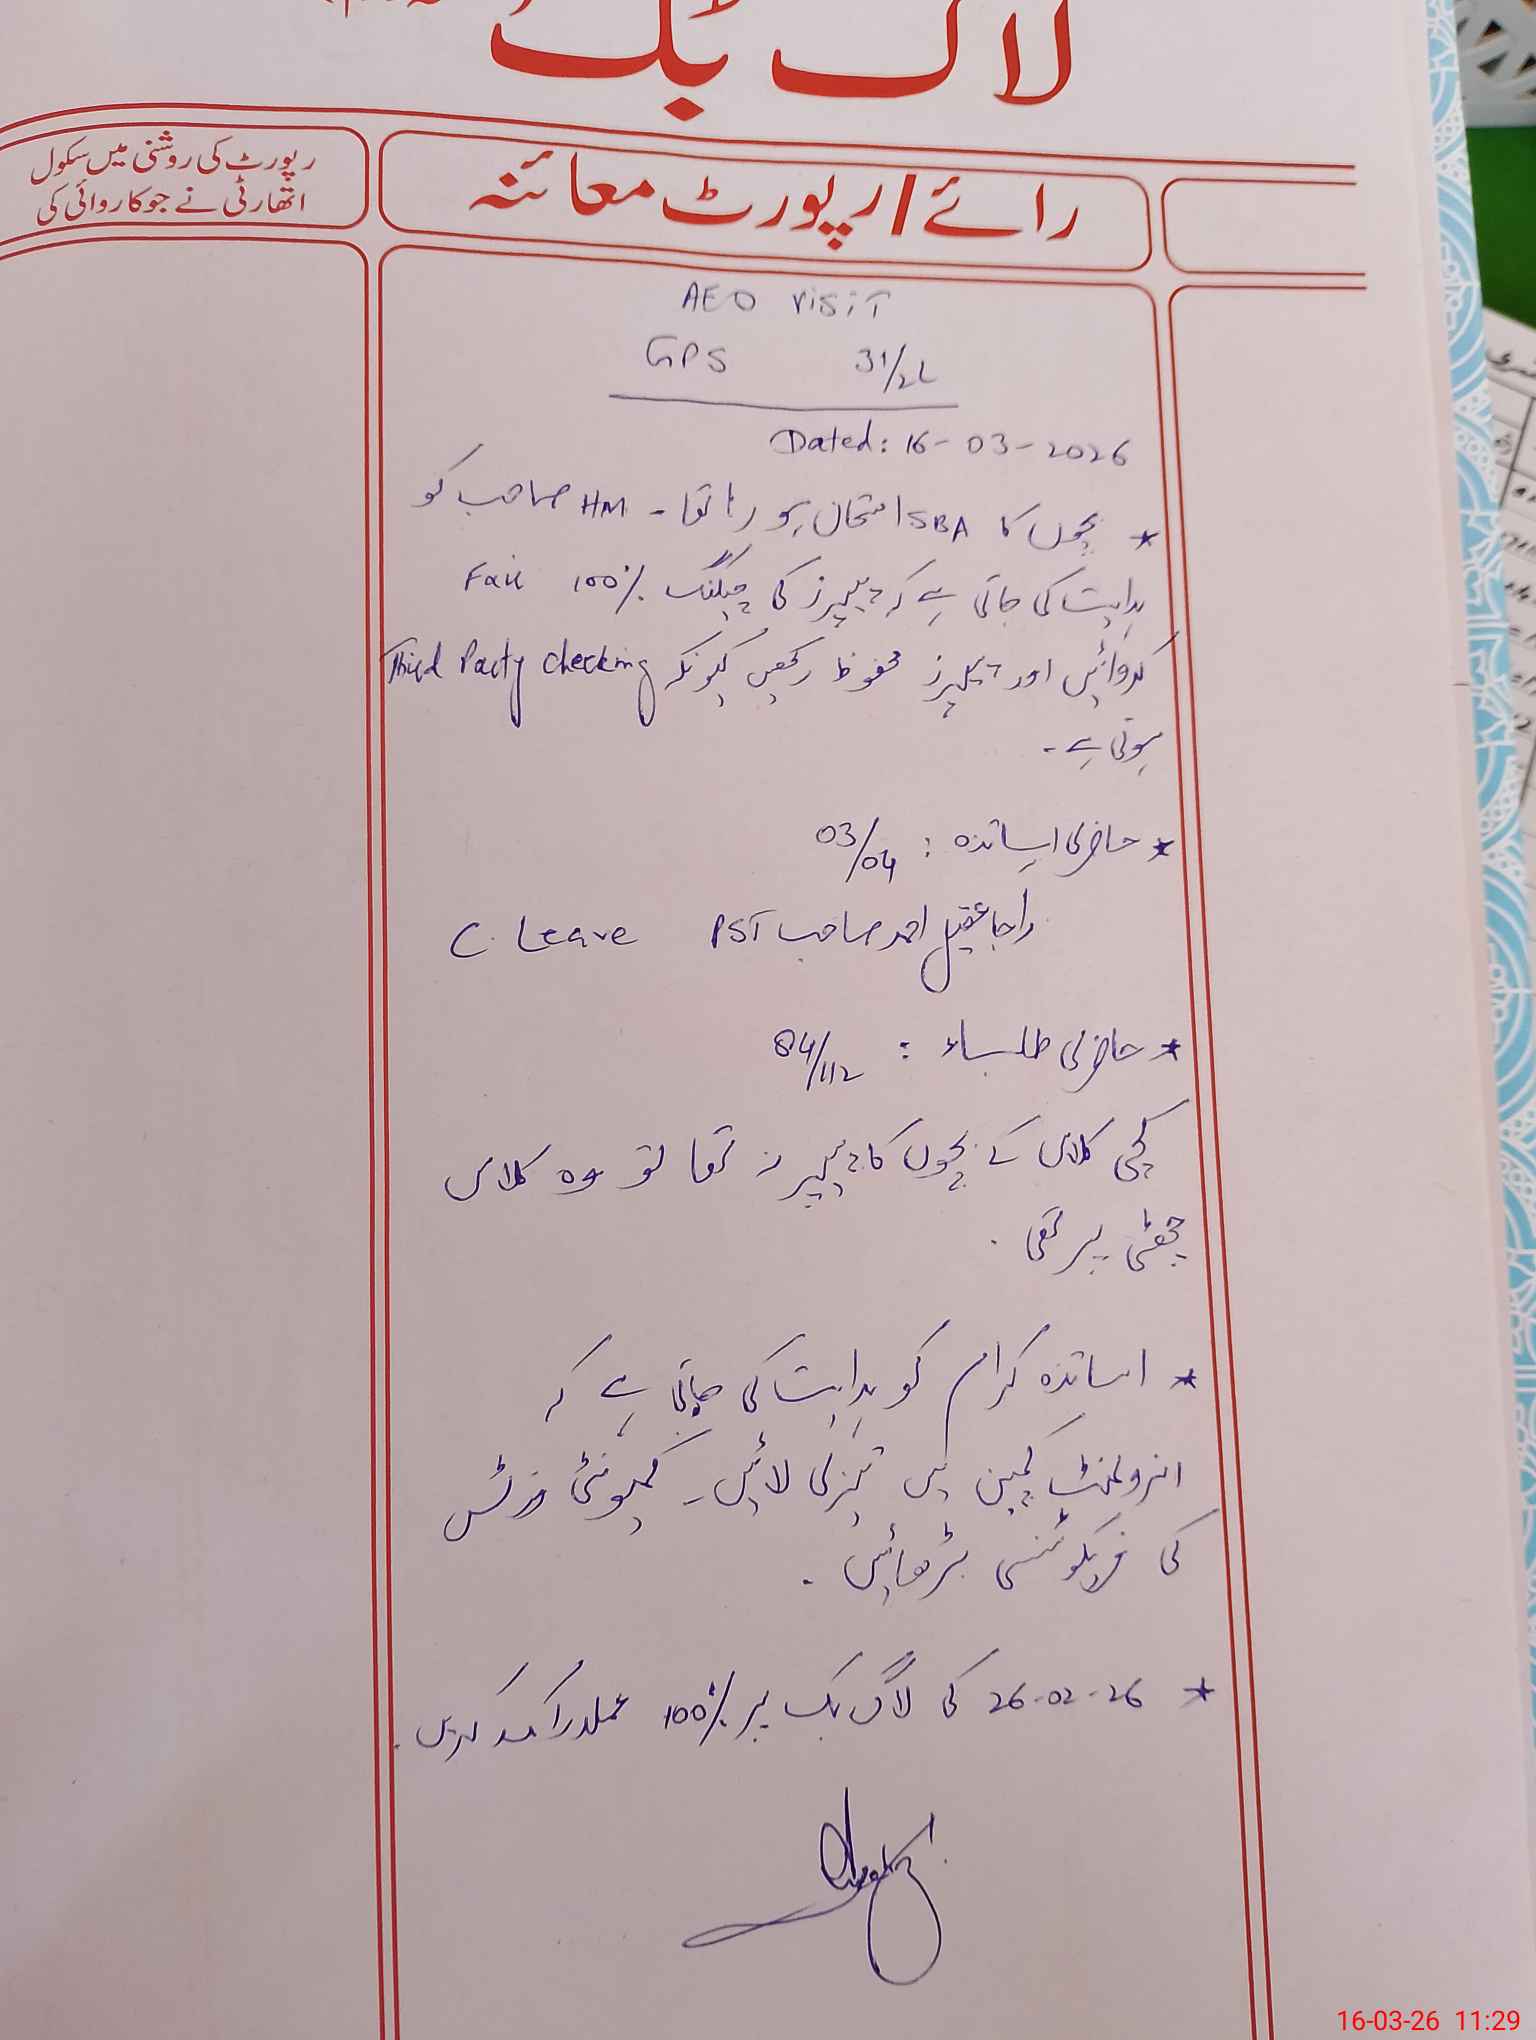 لاگ بک
رپورٹ کی روشنی میں سکول
اتھارٹی نے جو کاروائی کی
رائے / رپورٹ معائنہ
AEO VISIT
GPS 31/2L
Dated: 16-03-2026
* بچوں کا SBA امتحان ہو رہا تھا۔ HM صاحب کو
ہدایت کی جاتی ہے کہ پیپرز کی چیکنگ 100% Fair
کروائیں اور پیپرز محفوظ رکھیں کیونکہ Third Party checking
ہوتی ہے۔
* حاضری اساتذہ : 03/04
راجا عقیل احمد صاحب PST C. Leave
* حاضری طلباء : 84/112
کچی کلاس کے بچوں کا پیپرز تھا تو وہ کلاس
چھٹی پر تھی۔
* اساتذہ کرام کو ہدایت کی جاتی ہے کہ
انرولمنٹ کمپین میں تیزی لائیں۔ کمیونٹی وزٹس
کی فریکوئنسی بڑھائیں۔
* 26-02-26 کی لاگ بک پر 100% عملدرآمد کریں۔
16-03-26 11:29